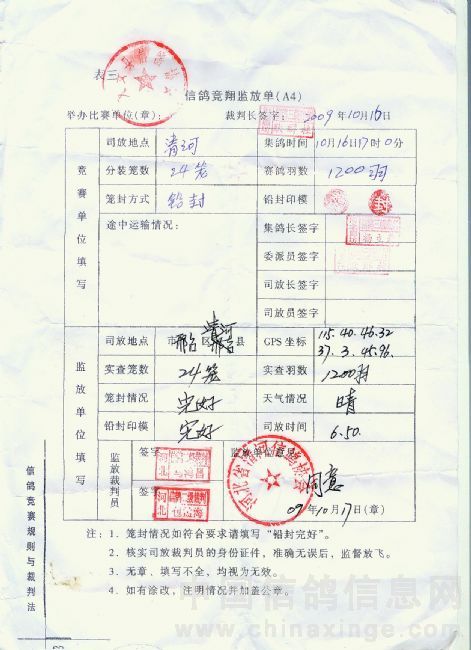 表三
信鸽竞翔监放单(A4)
举办比赛单位(章): 裁判长签字: 2009年10月16日
竞赛单位填写
司放地点 清河 集鸽时间 10月16日17时0分
分装笼数 24笼 赛鸽羽数 1200羽
笼封方式 铅封 铅封印模
途中运输情况: 集鸽长签字
委派员签字
司放长签字
司放员签字
监放单位填写
司放地点 市 邢台 区 清河 县 GPS 坐标 115.40.46.32
37.3.45.96.
实查笼数 24笼 实查羽数 1200羽
笼封情况 完好 天气情况 晴
铅封印模 完好 司放时间 6.50.
监放裁判员 签字 监放单位意见
河北
签字 同意
河北
河北省清河信鸽协会
09年10月17日(章)
注：1．笼封情况如符合要求请填写“铅封完好”。
2．核实司放裁判员的身份证件，准确无误后，监督放飞。
3．无章、填写不全，均视为无效。
4．如有涂改，注明情况并加盖公章。
信鸽竞赛规则与裁判法
中国信鸽信息网
www.chinaxinge.com